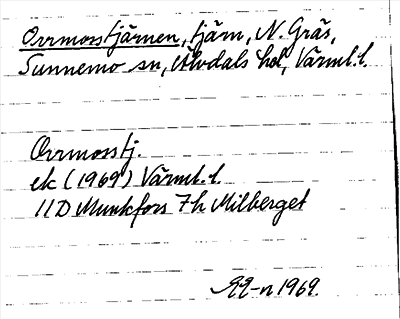 Orrmosstjärnen, tjärn, N. Gräs,
Sunnemo sn, Älvdals hd, Värml. l.
Orrmosstj.
ek (1969) Värml. l.
11D Munkfors 7h Milberget
1969.